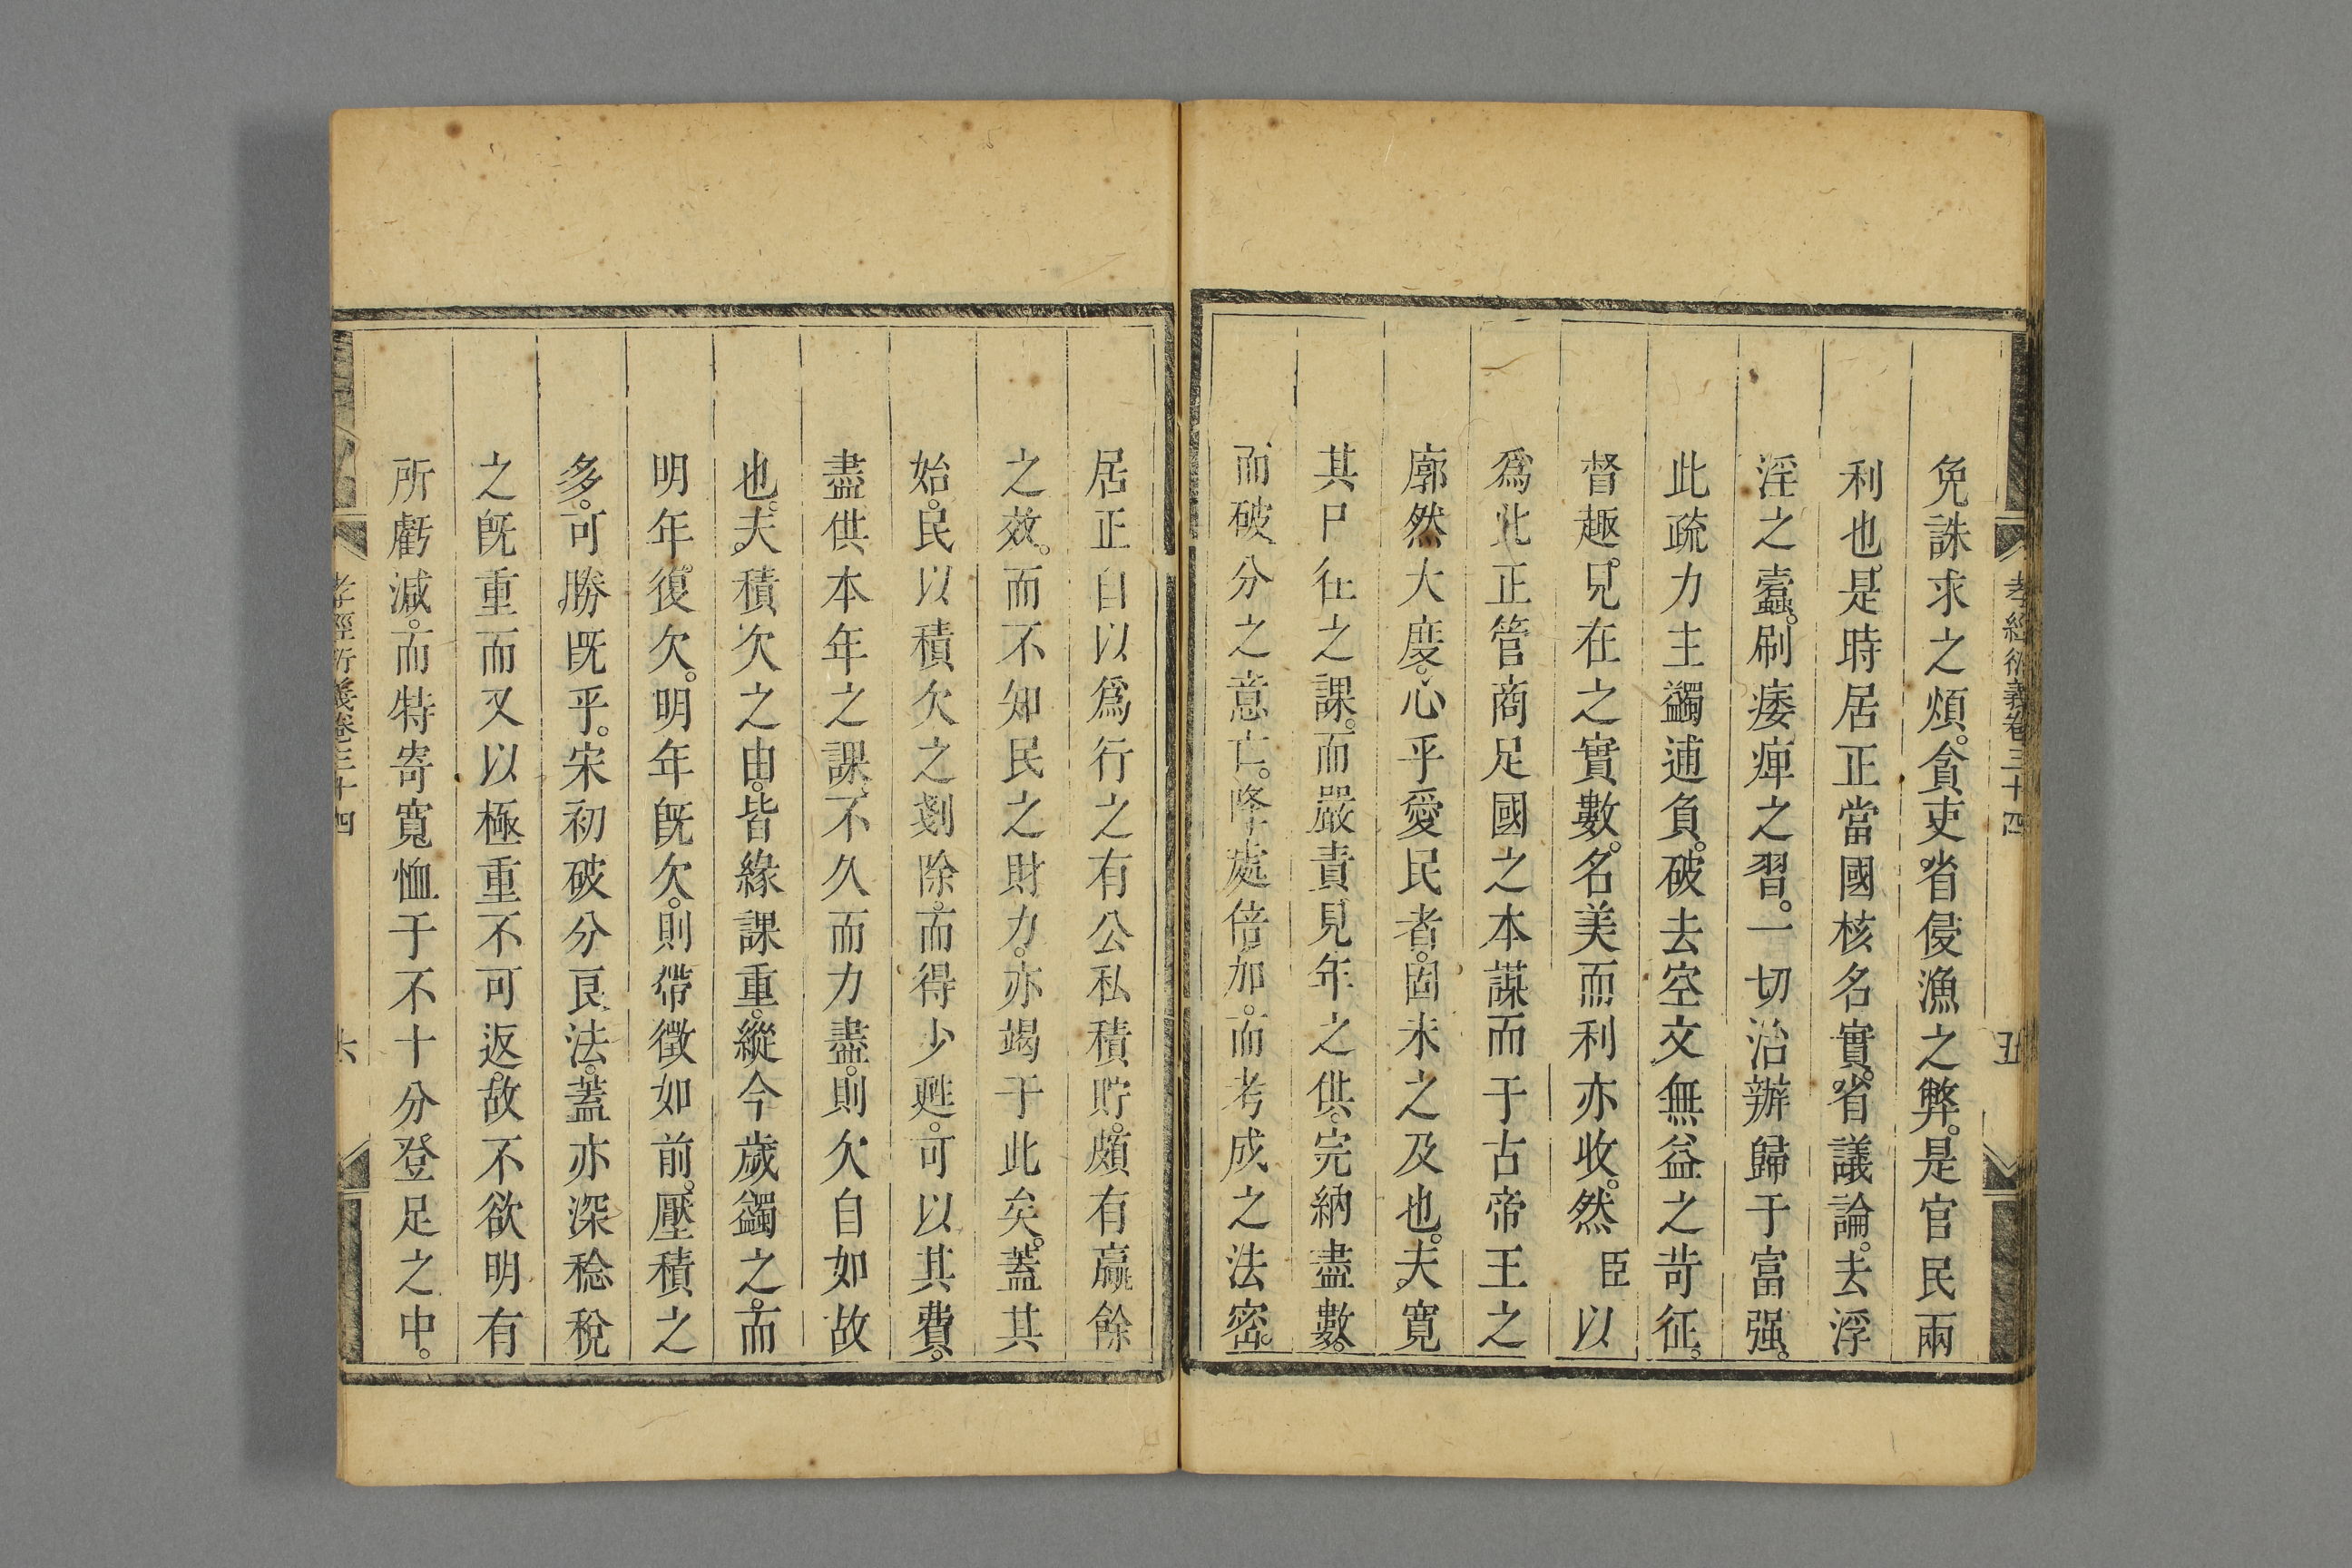 孝經衍義卷三十四
五
免誅求之煩。貪吏省侵漁之弊。是官民兩
利也。是時居正當國核名實。省議論。去浮
淫之蠹。刷痿痺之習。一切治辦歸于富强。
此疏力主蠲逋負。破去空文無益之苛征。
督趣見在之實數。名美而利亦收。然臣以
爲此正管商足國之本謀而于古帝王之
廓然大度。心乎愛民者。固未之及也。夫寬
其尸往之課。而嚴責見年之供。完納盡數。
而破分之意亡。降處倍加。而考成之法密。
居正自以爲行之有公私積貯。頗有贏餘
之效。而不知民之財力。亦竭于此矣。蓋其
始。民以積欠之剗除。而得少甦。可以其費。
盡供本年之課。不久而力盡。則欠自如故
也。夫積欠之由。皆緣課重。縱今歲蠲之。而
明年復欠。明年既欠。則帶徵如前。壓積之
多。可勝既乎。宋初破分良法。蓋亦深稔稅
之既重而又以極重不可返。故不欲明有
所虧減。而特寄寬恤于不十分登足之中。
孝經衍義卷三十四
六